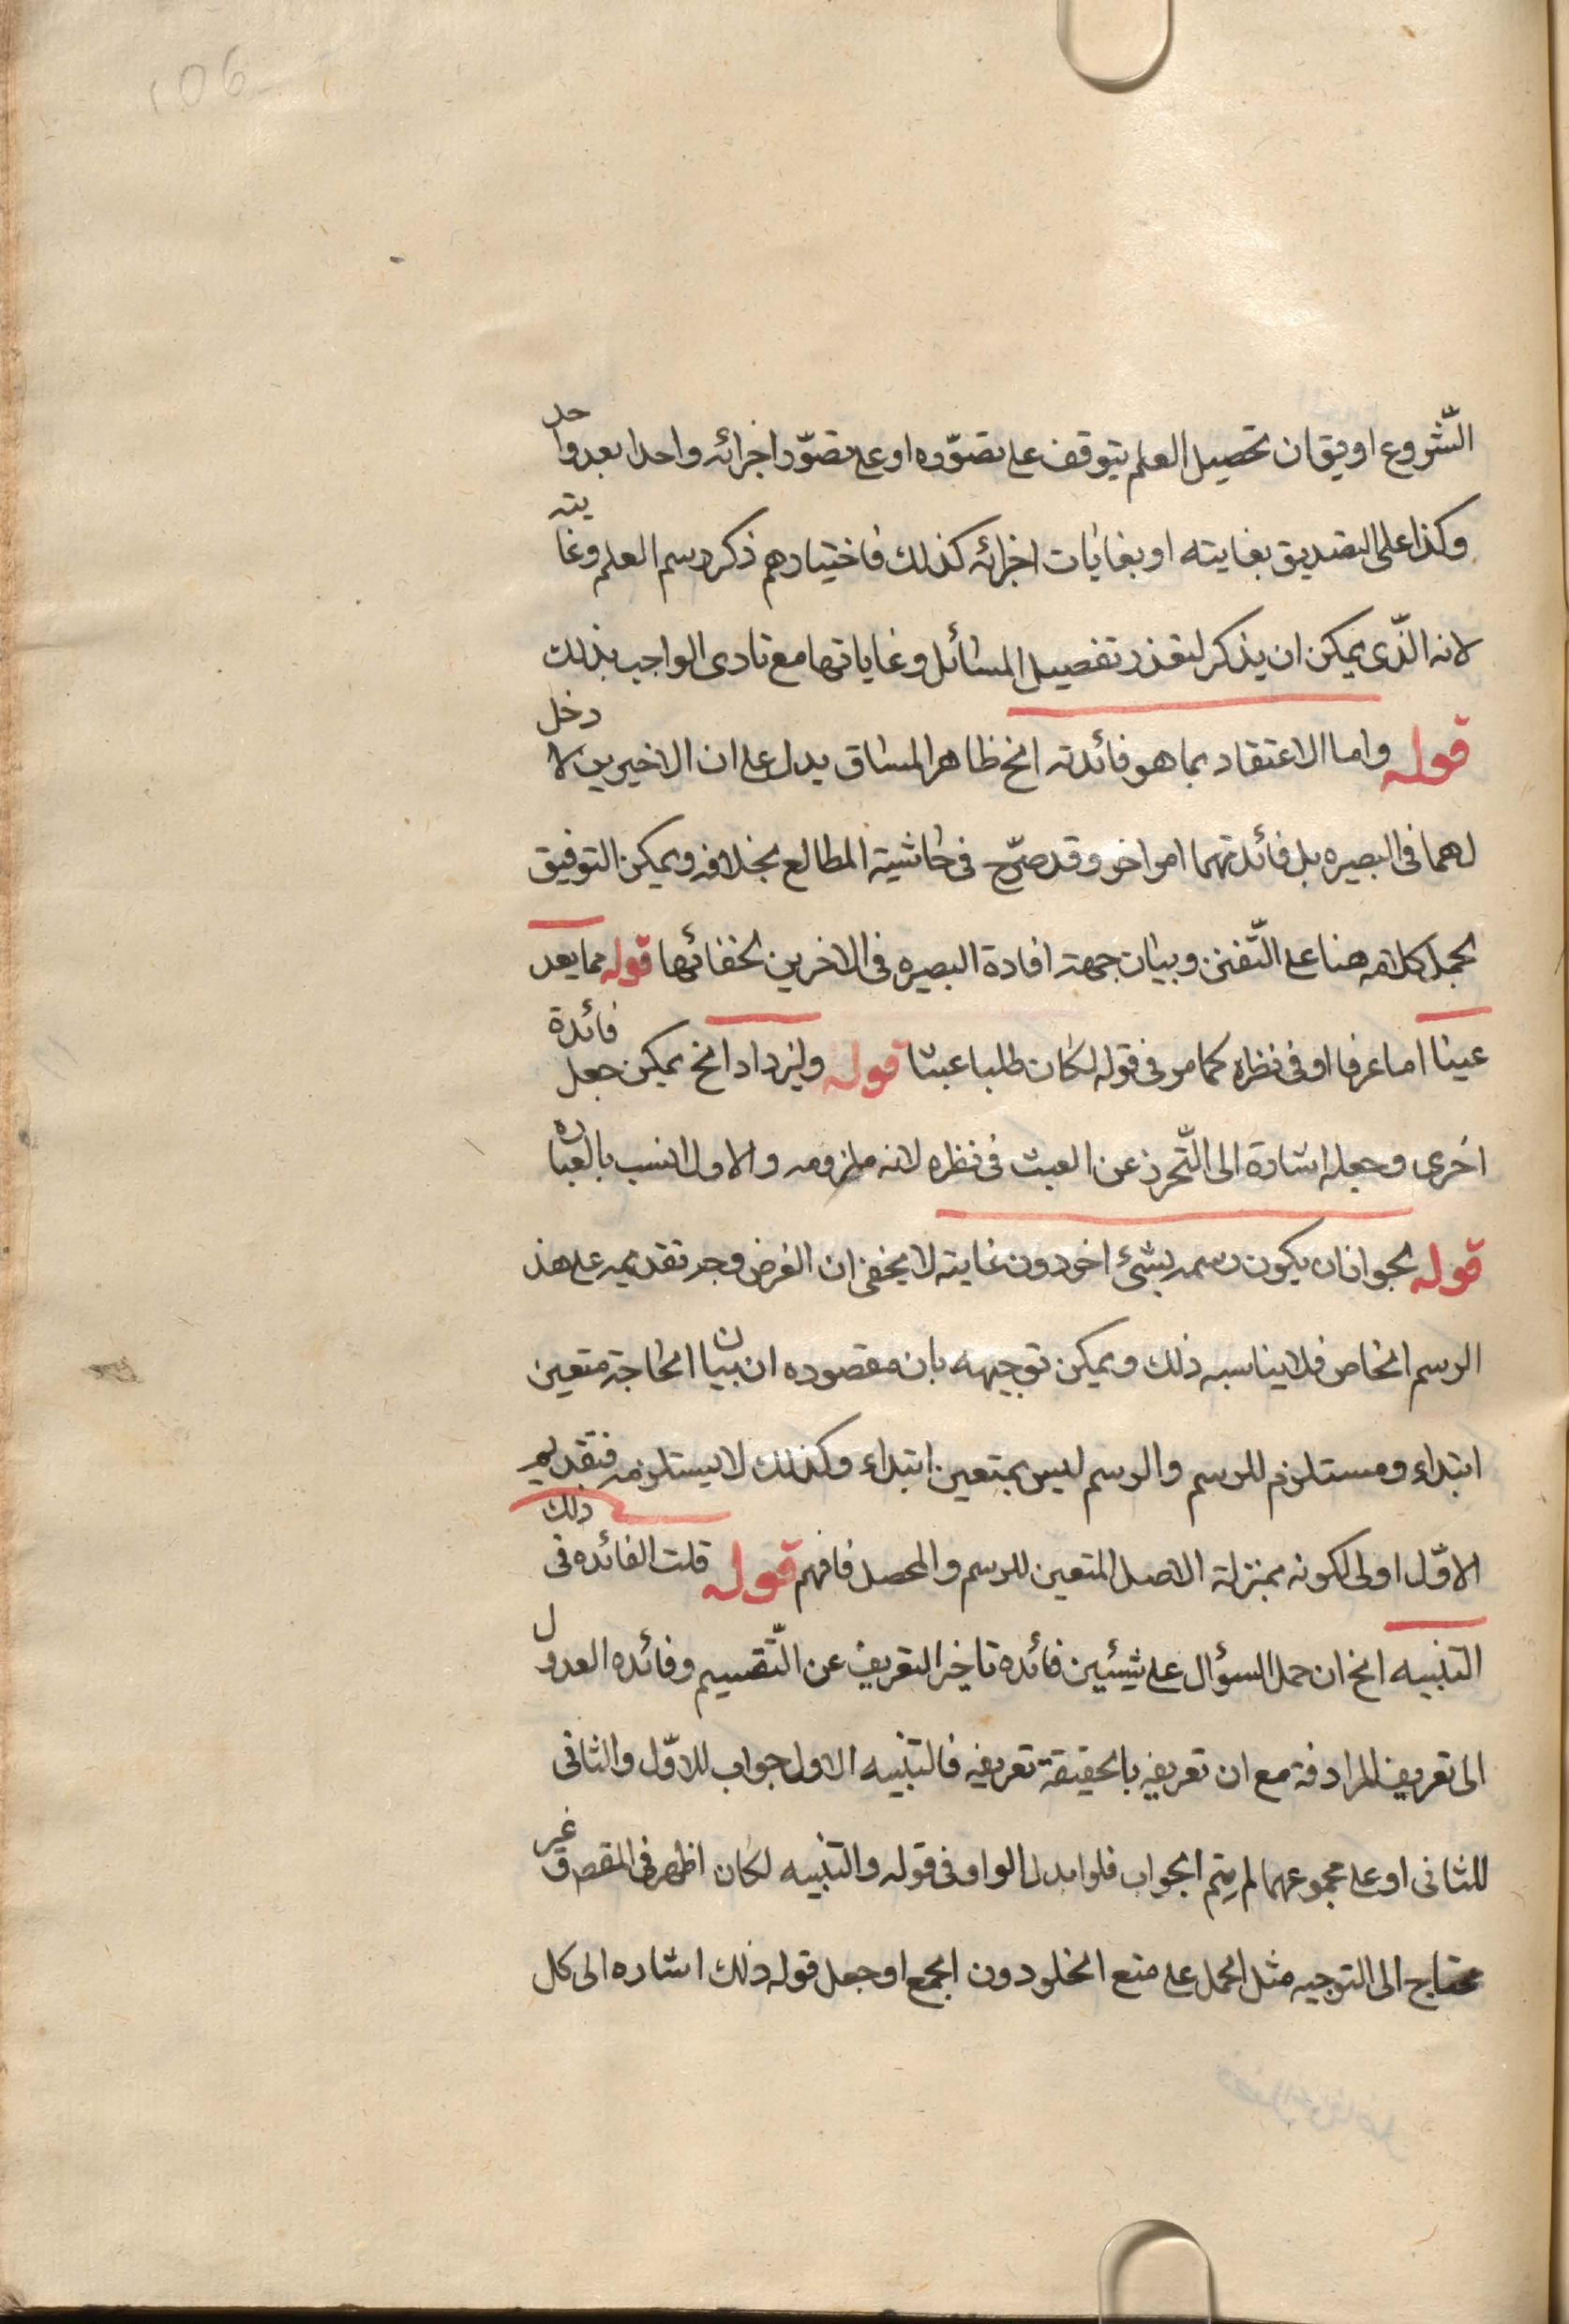 106
الشّروع او يق ان تحصيل العلم يتوقف على تصوّره او على تصوّر اجزائه واحدا بعد واحد
وكذا على التصديق بغايته او بغايات اجزائه كذلك فاختيارهم ذكر رسم العلم وغايته
لانه الذّى يمكن ان يذكر لتعذر تفصيل المسائل وغاياتها مع تادى الواجب بذلك
قوله واما الاعتقاد بما هو فائدته الخ ظاهر المساق يدل على ان الاخيرين لا دخل
لهما فى البصيره بل فائدتهما امر اخر وقد صرّح فى حاشية المطالع بخلافه ويمكن التوفيق
بحمل كلامه هنا على التّفنن وبيان جهة افادة البصيره فى الاخرين لخفائها قوله مما يعد
عبثا اما عرفا او فى نظره كما مر فى قوله لكان طلبا عبثا قوله وليزداد الخ يمكن جعل فائدة
اخرى وجعله اشارة الى التّحرز عن العبث فى نظره لانه ملزومه والاول انسب بالعباره
قوله لجواز ان يكون رسمه بشئ اخر دون غايته لا يخفى ان الغرض وجه تقديمه على هذ
الرسم الخاص فلا يناسبه ذلك ويمكن توجيهه بان مقصوده ان بيان الحاجة متعين
ابتداء ومستلزم للرسم والرسم ليس بمتعين ابتداء وكذلك لا يستلزمه فتقديم
الاوّل اولى لكونه بمنزلة الاصل المتعين للرسم والمحصل فافهم قوله قلت الفائده فى ذلك
التنبيه الخ ان حمل السؤال على شيئين فائده تاخير التعريف عن التّقسيم وفائده العدول
الى تعريف المرادفة مع ان تعريفه بالحقيقة تعريفه فالتنبيه الاول جواب للاوّل والثانى
للثانى او على مجموعهما لم يتم الجواب فلو ابدل الواو فى قوله والتنبيه لكان اظهر فى المقصود غير
محتاج الى التوجيه مثل الحمل على منع الخلو دون الجمع او جعل قوله ذلك اشاره الى كل